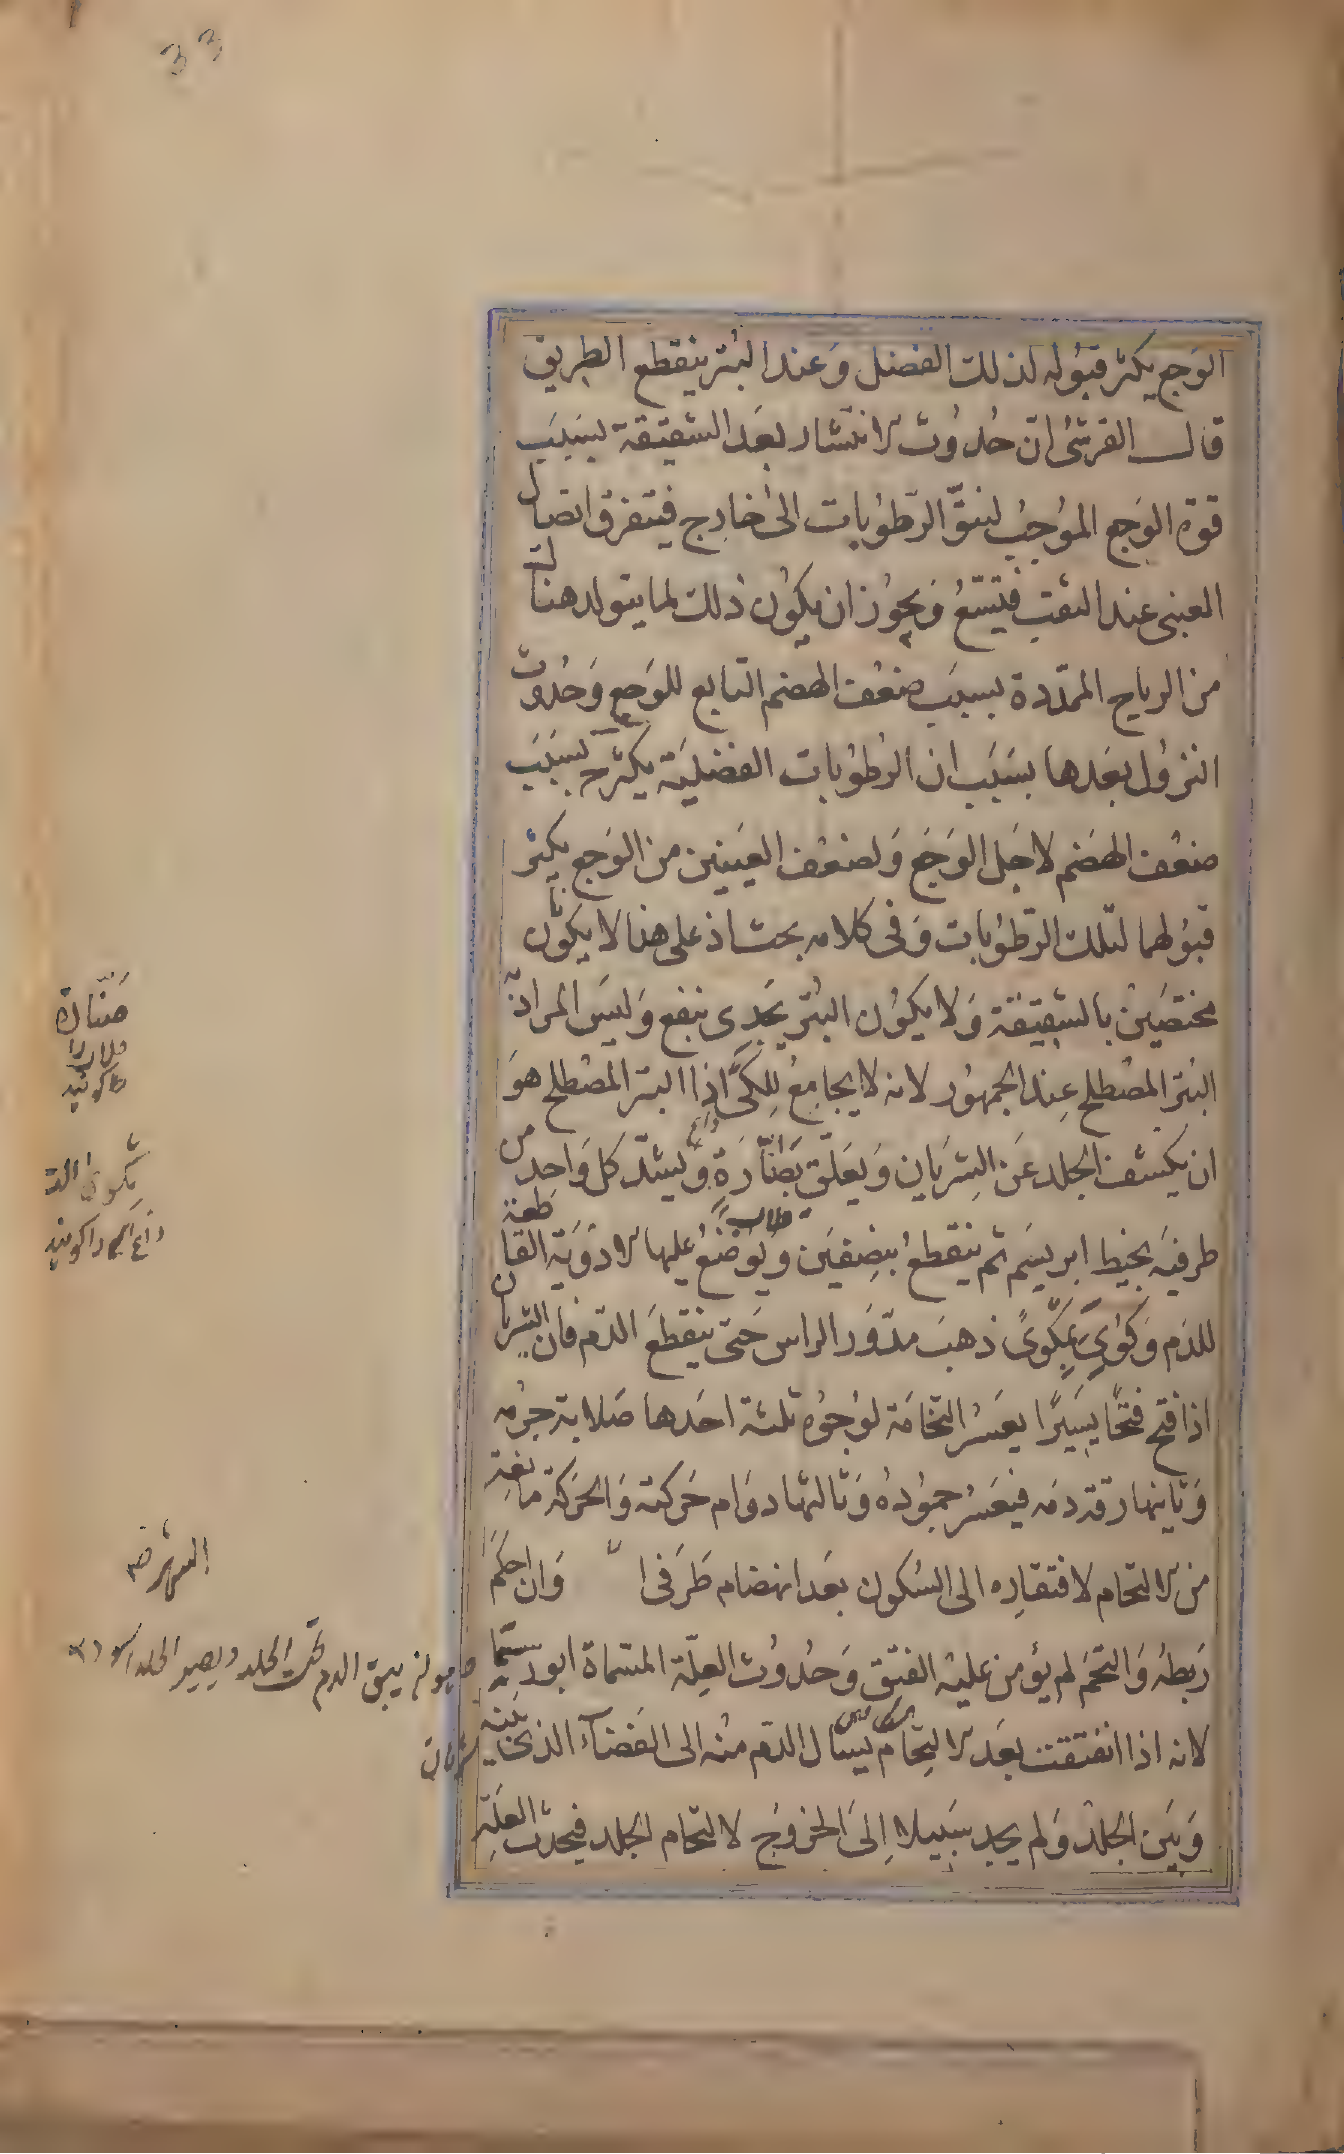 33
الوَجع يكثر قبُوله لذلك الفضل وَعند البتر ينقطع الطريق
قال القرشىُ انّ حُدوُث الانتشار بعَد الشقيقة بسَبَب
قوّة الوَجع الموُجبُ لبثوّ الرّطوُبات الىٰ خارج فيتفرق اتصال
العبنى عند الثقب فيتسّعُ وَيجوُز ان يكوُن ذلك لما يتولد هناك
من الرياح الممدّدة بسبَب ضعُف الهضم التابع للوَجع وَحدوُث
النزوُل بعَدها بسَبَب ان الرّطوُبات الفضليَة يكثر ح بسَبَب
ضعُف الهضَم لاجَل الوَجَع وَلضعُف العيَنين من الوَجع يكثر
قبوُلهما لتلك الرّطوُبات وَفى كلامه بحث اذ على هذا لا يكوُن
مختصّين بالشقيقة وَلا يكوُن البتر يجَدى بنفع وَليسَ المراد
البتر المصُطلح عِند الجمهُور لانه لا يجامِعُ للكىّ اذ البتر المصُطلح هوَ
ان يكشف الجلد عَن الشِريَان وَيعَلّق بصَنّارَةٍ وَيشدّ كل وَاحد من
طرفيَه بخيط ابريسَم ثم ينقطعُ بنِصِفيَن وَيوُضَعُ عليها الادوَيَة القاطعة
للدَم وَكوُىَ بمِكوىً ذهبَ مدّوَر الراس حَتى ينقطعَ الدّم فان الشريان
اذا فتح فتحًا يسَيرًا يعَسرُ التحامَه لوُجوُه ثلثة احَدها صَلابة جرُمه
وَثانيها رقة دمَه فيعَسرُ جموُدُه وَثالثها دوَام حَركته وَالحَركة مانعة
من الالتحام لافتقاِره الى السُكون بعَد انضمام طرَفى ا وَان احكمَ
رَبطهُ وَالتحَم لم يؤمن عليهْ الفتق وَحدُوُث العِلّة المسّماة ابورسما
لانه اذا انفتقت بعَد الالتِحَام يسَال الدّم منْه الى الفَضَآء الذى بينه
وَبيَن الجلدْ وَلم يجد سَبيلا اِلىَ الخروَج لالتحام الجلد فيحدث العلَة
صَنّارة
قلاب را
كويند
داغ را كويند
الشرف
يبقى الدم تحت الجلد ويصير الجلد اسود
شريان